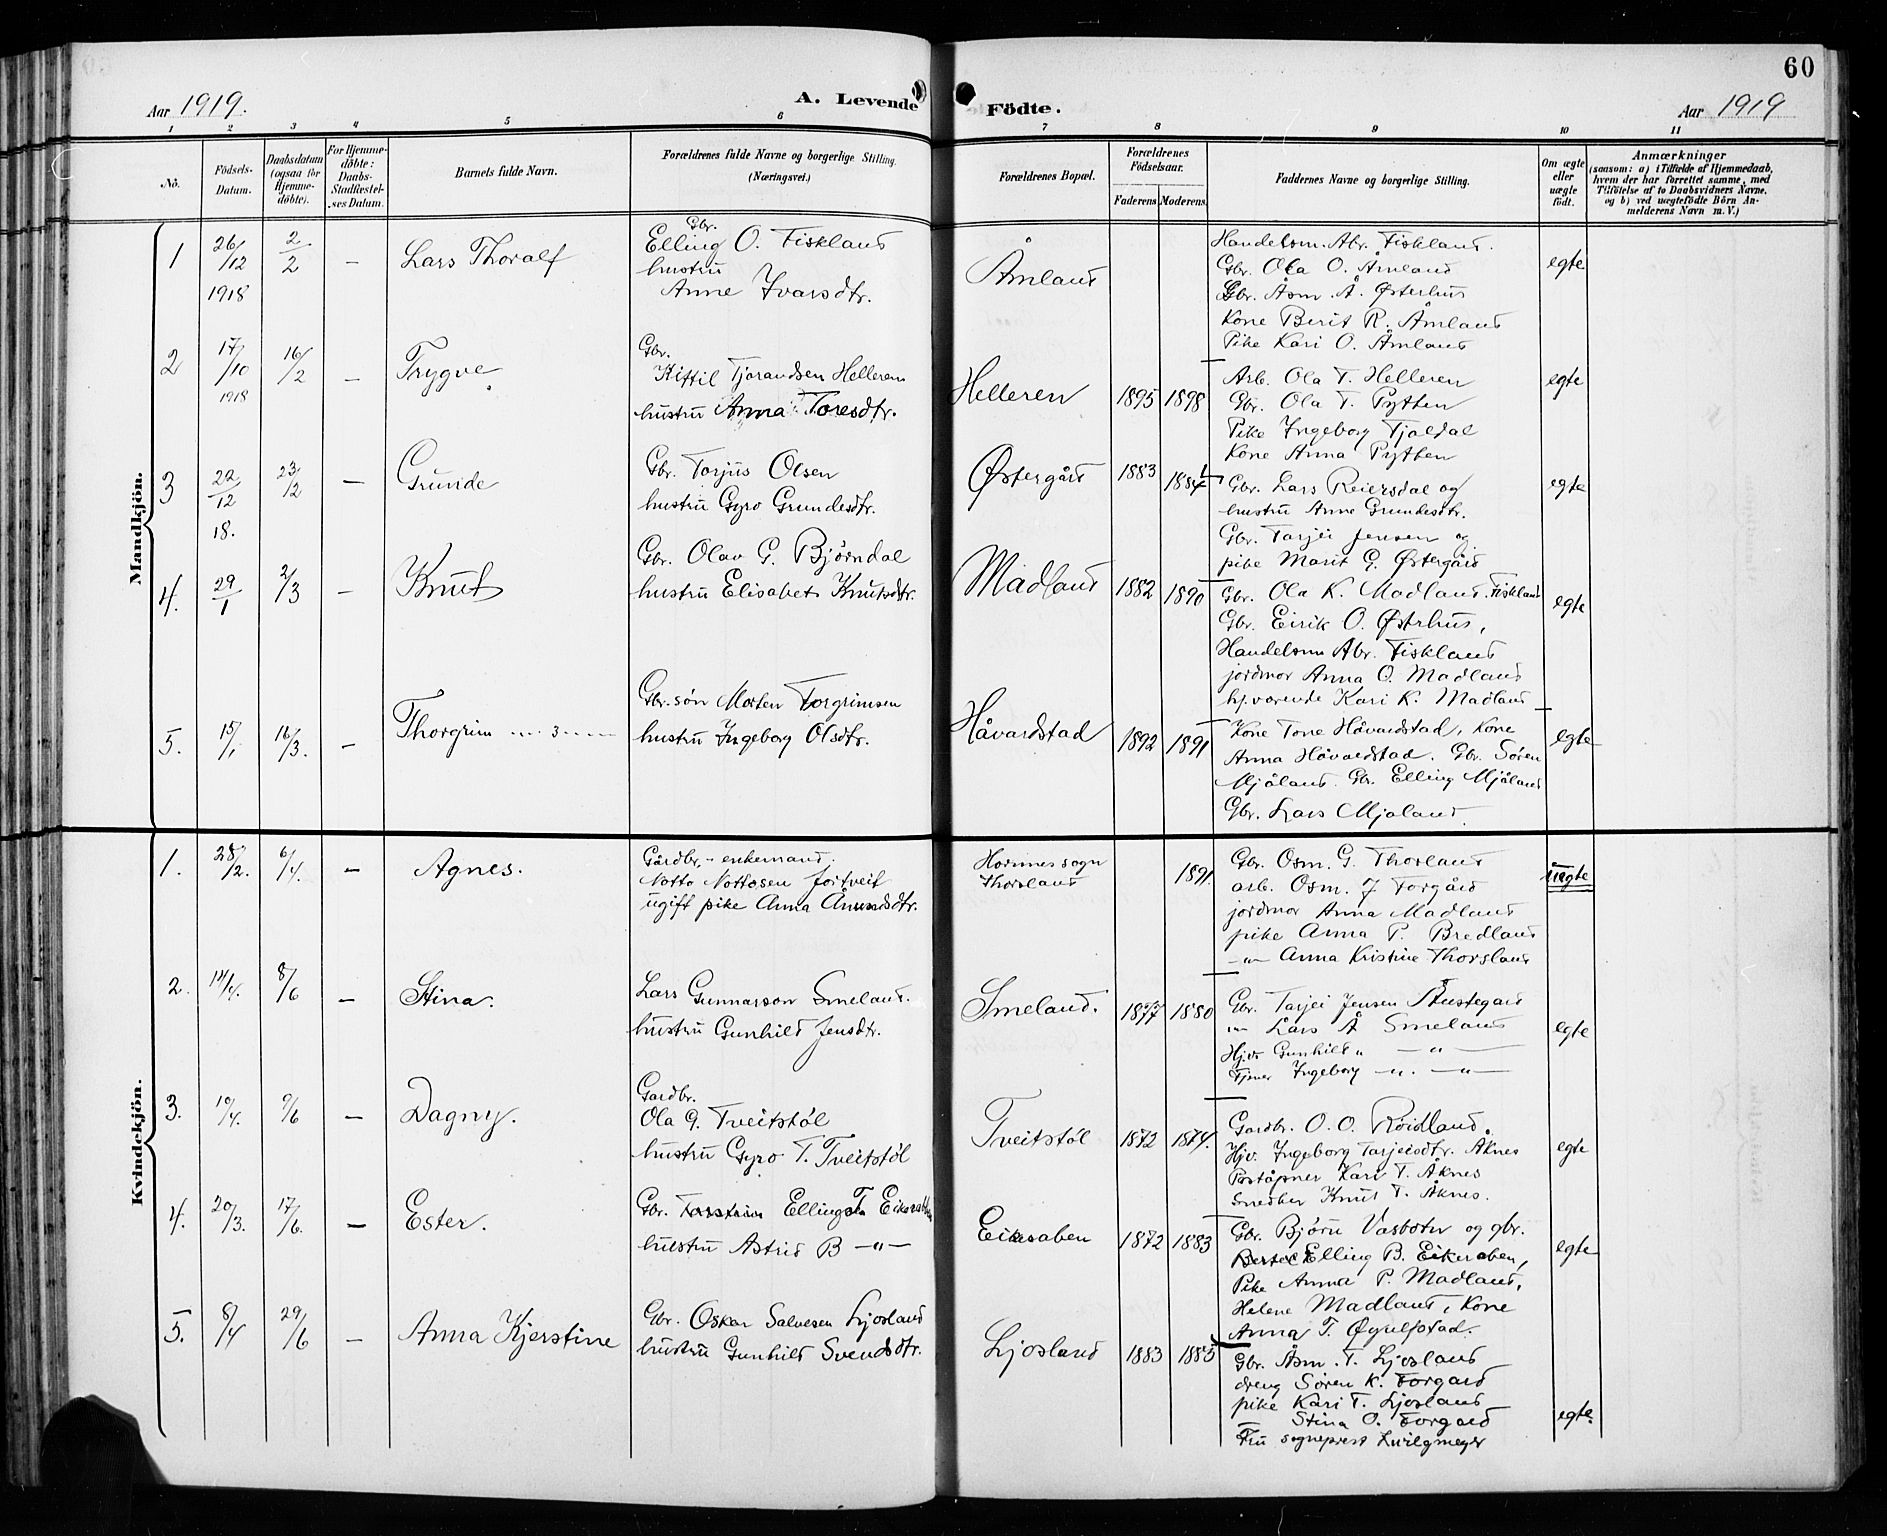 60
Aar 1919.
A. Levende
Födte.
Aar 1919
1 2 3 4 5 6 7 8 9 10 11
No.
Födsels-
Datum.
Daabsdatum
(ogsaa for
Hjemme-
døbte).
For Hjemme-
døbte:
Daabs-
Stadfæstel-
ses Datum.
Barnets fulde Navn.
Forældrenes fulde Navne og borgerlige Stilling.
(Næringsvei.)
Forældrenes Bopæl.
Forældrenes
Födselsaar.
Faderens. Moderens.
Faddernes Navne og borgerlige Stilling.
Om ægte
eller
uægte
født.
Anmærkninger
(saasom: a) i Tilfælde af Hjemmedaab,
hvem der har forrettet samme, med
Tilföielse af to Daabsvidners Navne,
og b) ved uægtefödte Börn An-
melderens Navn m. V.)
Mandkjön.
1 26/12 1918 2/2 – Lars Thoralf
Gbr.
Elling O. Fiskland
hustru
Anne Ivarsdtr.
Åmland
Handelsm. Abr. Fiskland.
Gbr. Ola O. Åmland
Gbr. Åsm. Å. Østerhus
Kone Berit R. Åmland
Pike Kari O. Åmland
egte
2 17/10 1918 16/2 – Trygve
Gbr.
Kittil Tjorandsen Helleren
hustru Anna Toresdtr.
Helleren 1895 1898
Arb. Ola T. Helleren
Gbr. Ola T. Pytten
Pike Ingeborg Tjaldal
Kone Anna Pytten
egte
3 22/12 18. 23/2 – Grunde
Gbr. Torjus Olsen
hustru Gyro Grundesdtr.
Østergård 1883 1884
Gbr. Lars Reiersdal og
hustru Anne Grundesdtr.
Gbr. Tarjei Jensen og
pike Marit G. Østergård
egte
4. 29/1 2/3 – Knut
Gbr. Olav G. Bjørndal
hustru Elisabet Knutsdtr.
Madland 1882 1890
Gbr. Ola K. Madland. Fiskland
Gbr. Eirik O. Østerhus,
Handelsm Abr. Fiskland
jordmor Anna O. Madland
hjvørende Kari K. Madland
egte
5. 15/1 16/3. – Thorgrim
Gbr.søn Morten Torgrimsen
hustru Ingeborg Olsdtr.
Håvardstad 1892 1891
Kone Tone Håvardstad, Kone
Anna Håvardstad. Gbr. Søren
Mjåland. Gbr. Elling Mjåland
Gbr. Lars Mjåland.
egte
Kvindekjön.
1. 28/2. 6/4. – Agnes.
Gårdbr. – enkemand.
Notto Nottosen Jortveit
ugift pike Anna Ånundsdtr.
Hornnes sogn
Thorsland
1891.
Gbr. Osm. G. Thorsland
arb. Osm. J Forgård
jordmor Anna Madland
pike Anna P. Bredland
–"– Anna Kristine Thorsland
uegte
2. 14/4. 8/6 – Stina.
Lars Gunnarson Smeland.
hustru Gunhild Jensdtr.
Smeland. 1877 1880
Gbr. Tarjei Jensen Austegard
–"– Lars Å Smeland
Hjv. Gunhild " –"–
Tjener Ingeborg –"– –"–
egte
3. 10/4. 9/6 – Dagny.
Gardbr.
Ola G. Tveitstøl
hustru Gyro T. Tveitstøl
Tveitstøl 1872 1874.
Gardbr. O. O. Røidland.
Hjv. Ingeborg Tarjeisdtr. Åknes
Poståpner Kari T. Åknes
Smedker Knut T. Åknes.
egte
4. 20/3. 17/6. – Ester.
hustru Astrid B –"–
1872 1883
Gbr. Bjørn Vasbotn og gbr.
Elling B. Eikeraben,
Pike Anna P. Madland,
Helene Madland, Kone
Anna T. Øyulfstad.
egte
5. 8/4 29/6 – Anna Kjerstine
Gbr. Oskar Salvesen Ljosland
hustru Gunhild Svendsdtr.
Ljosland 1883 1885
Gbr. Åsm. T. Ljosland
dreng Søren K. Forgard
pike Kari T. Ljosland
Stina O. Forgard
Fru sogneprest
egte.